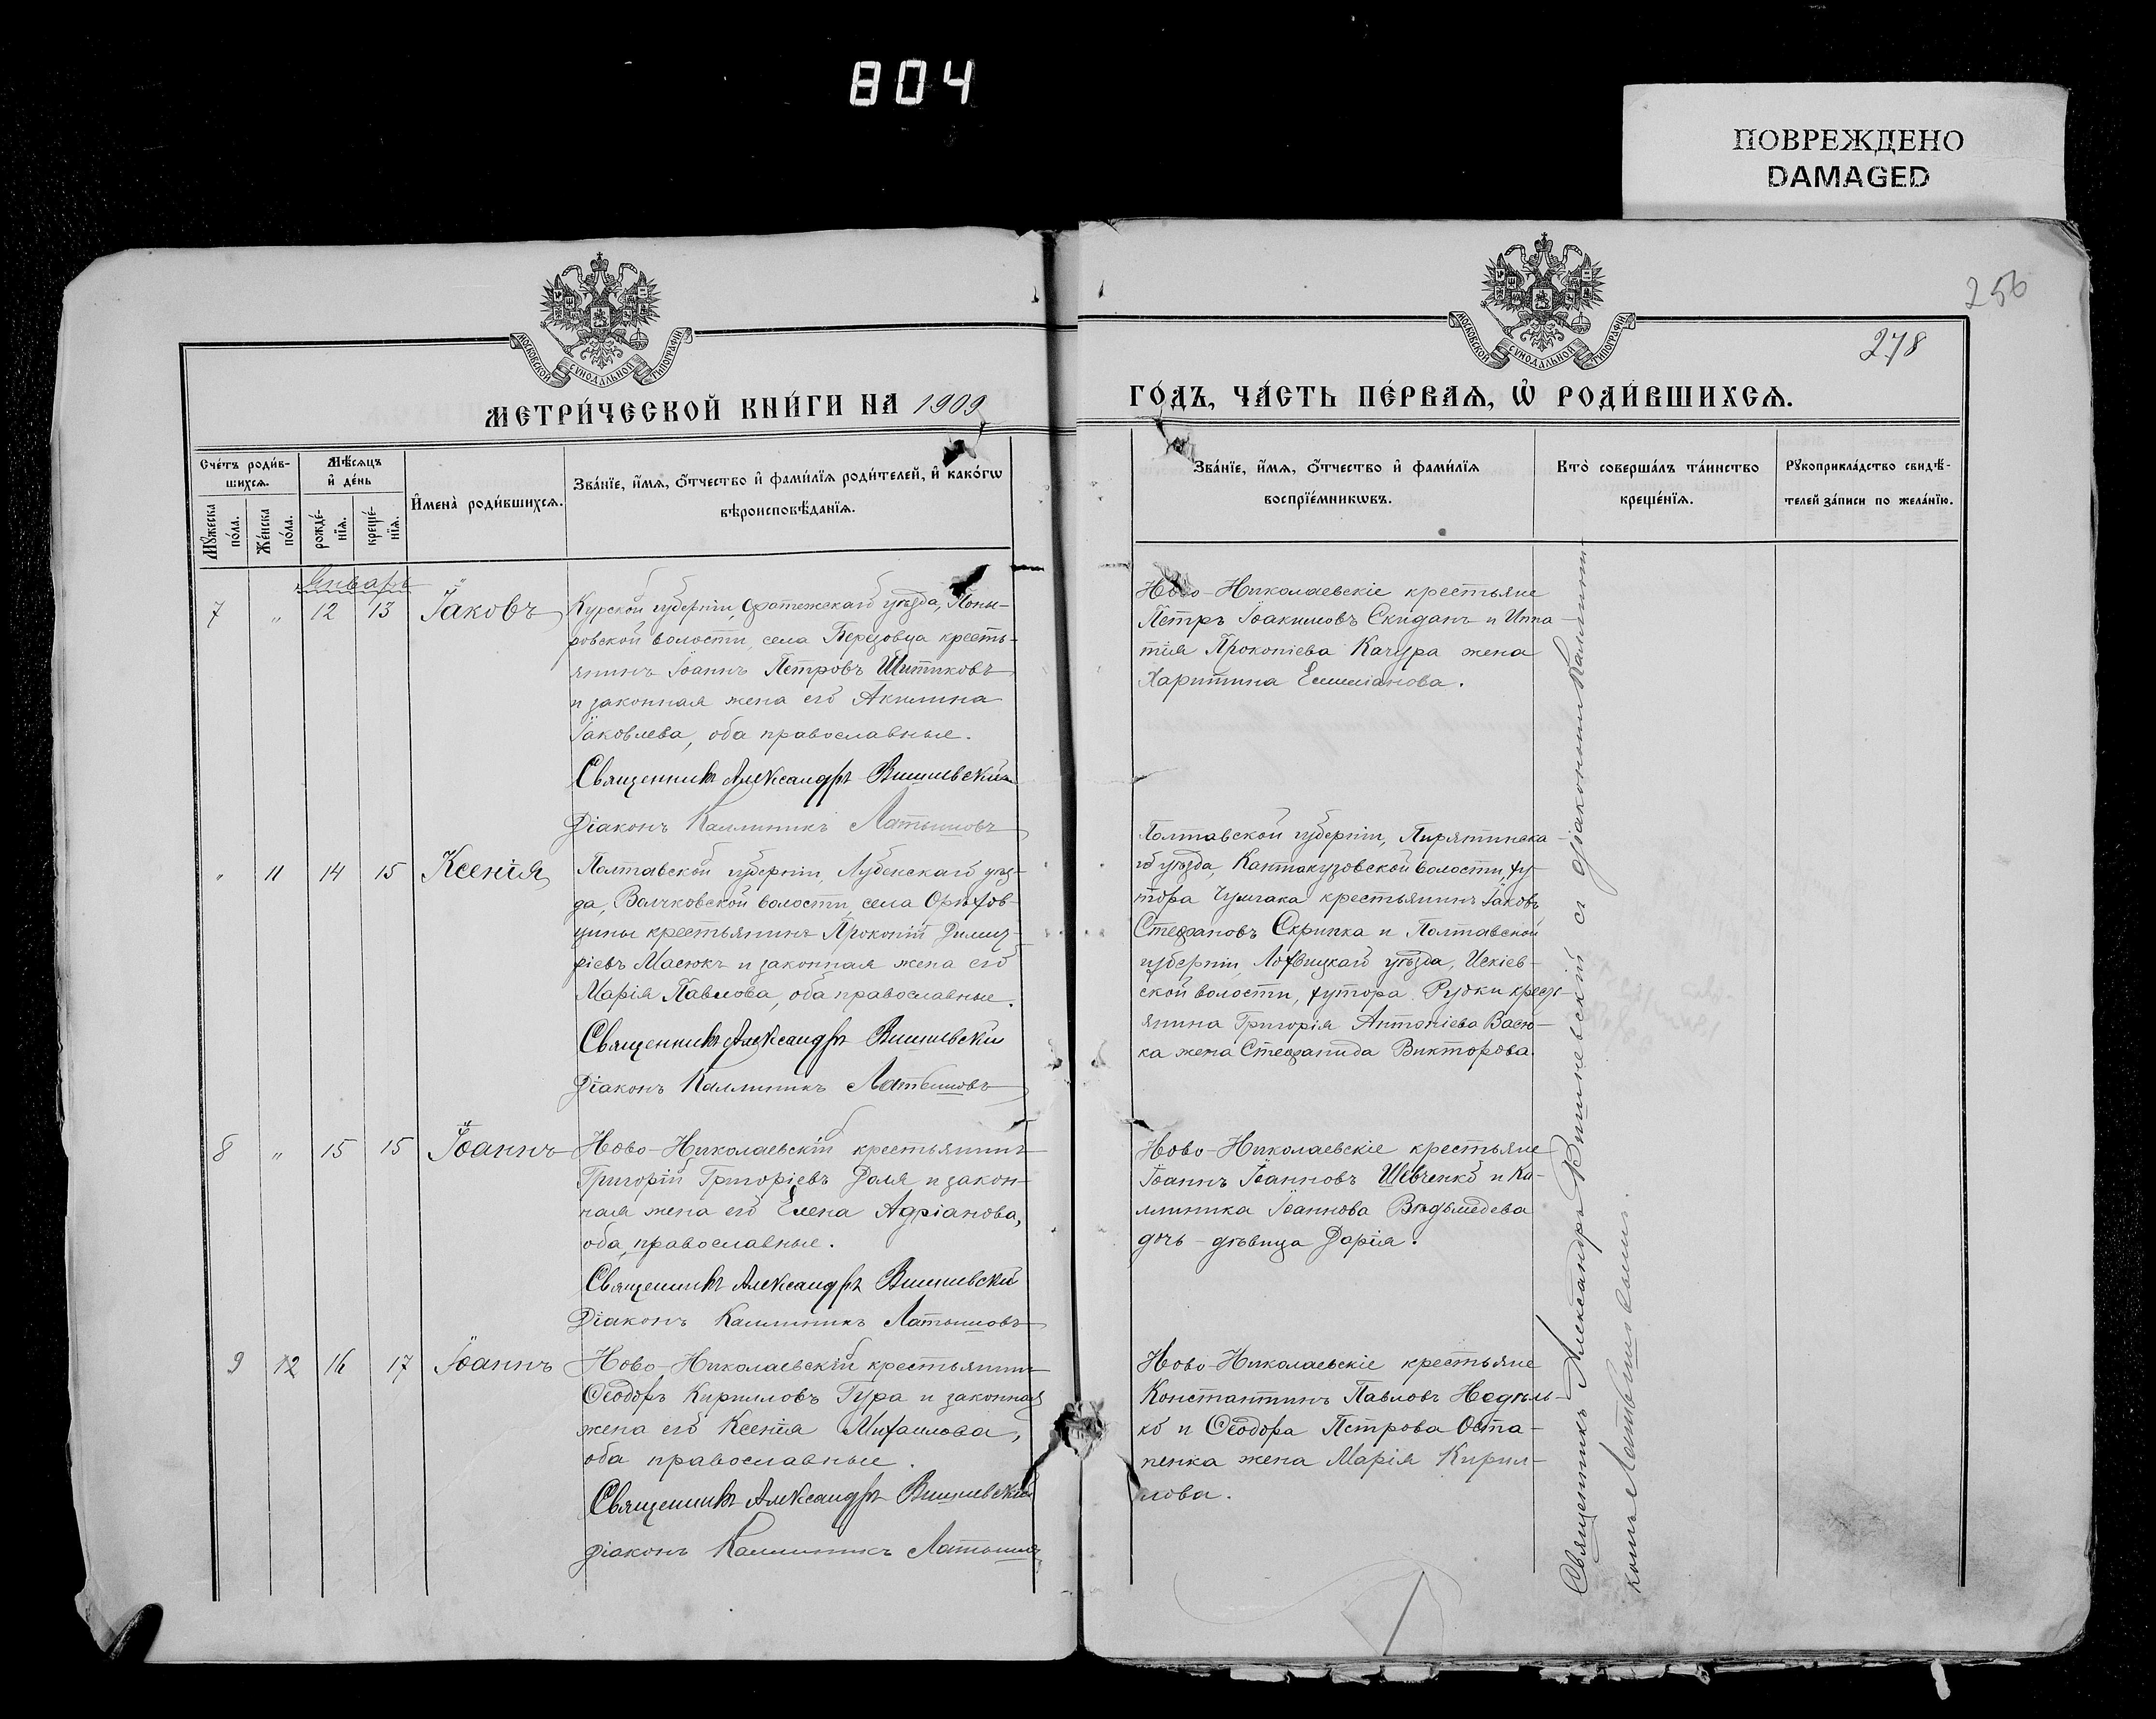 804
ПОВРЕЖДЕНО
DAMAGED
256
278
МОСКОВСКОЙ СѴНОДАЛЬНОЙ ТИПОГРАФІИ
МОСКОВСКОЙ СѴНОДАЛЬНОЙ ТИПОГРАФІИ
МЕТРИ́ЧЕСКОЙ КНИ́ГИ НА 1909
ГО́ДЪ, ЧА́СТЬ ПЕ́РВАѦ, Ѡ РОДИ́ВШИХСѦ.
Сче́тъ роди́в-
шихсѧ.
Мꙋжеска по́ла.
Же́нска по́ла.
Мѣ́сѧцъ
и҆ де́нь
рожде́-
нїѧ.
креще́-
нїѧ.
И҆мена̀ роди́вшихсѧ.
Зва́нїе, и҆́мѧ, ѻ҆́тчество и҆ фами́лїѧ роди́телей, и҆ како́гѡ
вѣроисповѣ́данїѧ.
Зва́нїе, и҆́мѧ, ѻ҆́тчество и҆ фами́лїѧ
воспрїе́мникѡвъ.
Кто̀ соверша́лъ та́инство
креще́нїѧ.
Рꙋкоприкла́дство свидѣ́-
телей за́писи по жела́нїю.
Январь
7 " 12 13 Іаковъ
Курской губерніи, Фатежскаго уѣзда, Поны-
ровской волости, села Березовца кресть-
янинъ Іоаннъ Петровъ Шитиковъ
и законная жена его Акилина
Іаковлева, оба православные.
Священникъ Александръ Вишневскій
Діаконъ Каллиникъ Латышовъ
Ново-Николаевскіе крестьяне
Петръ Іоакимовъ Скиданъ и Ипа-
тія Прокопіева Качура жена
Харитина Емиліанова.
" 11 14 15 Ксенія
Полтавской губерніи, Лубенскаго уѣз-
да, Волчковской волости, села Орѣхов-
щины крестьянинъ Прокопій Димит-
ріевъ Масюкъ и законная жена его
Марія Павлова, оба православные.
Священникъ Александръ Вишневскій
Діаконъ Каллиникъ Латышовъ
Полтавской губерніи, Пирятинска-
го уѣзда, Кантакузовской волости, ху-
тора Чумгака крестьянинъ Іаковъ
Стефановъ Скрипка и Полтавской
губерніи, Лохвицкаго уѣзда, Искіев-
ской волости, хутора Рудки кресть-
янина Григорія Антоніева Васю-
ка жена Стефанида Викторова.
8 " 15 15 Іоаннъ
Ново-Николаевскій крестьянинъ
Григорій Григоріевъ Даля и закон-
ная жена его Елена Адріанова,
оба православные.
Священникъ Александръ Вишневскій
Діаконъ Каллиникъ Латышовъ
Ново-Николаевскіе крестьяне
Іоаннъ Іоанновъ Шевченко и Ка-
линика Іоаннова Вѣдьмедева
дочь-дѣвица Дарія.
9 12 16 17 Іоаннъ
Ново-Николаевскій крестьянинъ
Ѳеодоръ Кирилловъ Гура и законная
жена его Ксенія Михаилова,
оба православные.
Священникъ Александръ Вишневскій
Діаконъ Каллиникъ Латышовъ
Ново-Николаевскіе крестьяне
Константинъ Павловъ Недѣль-
ко и Ѳеодора Петрова Оста-
пенка жена Марія Кирил-
лова.
Священникъ Александръ Вишневскій съ діакономъ Каллини-
комъ Латышовымъ.